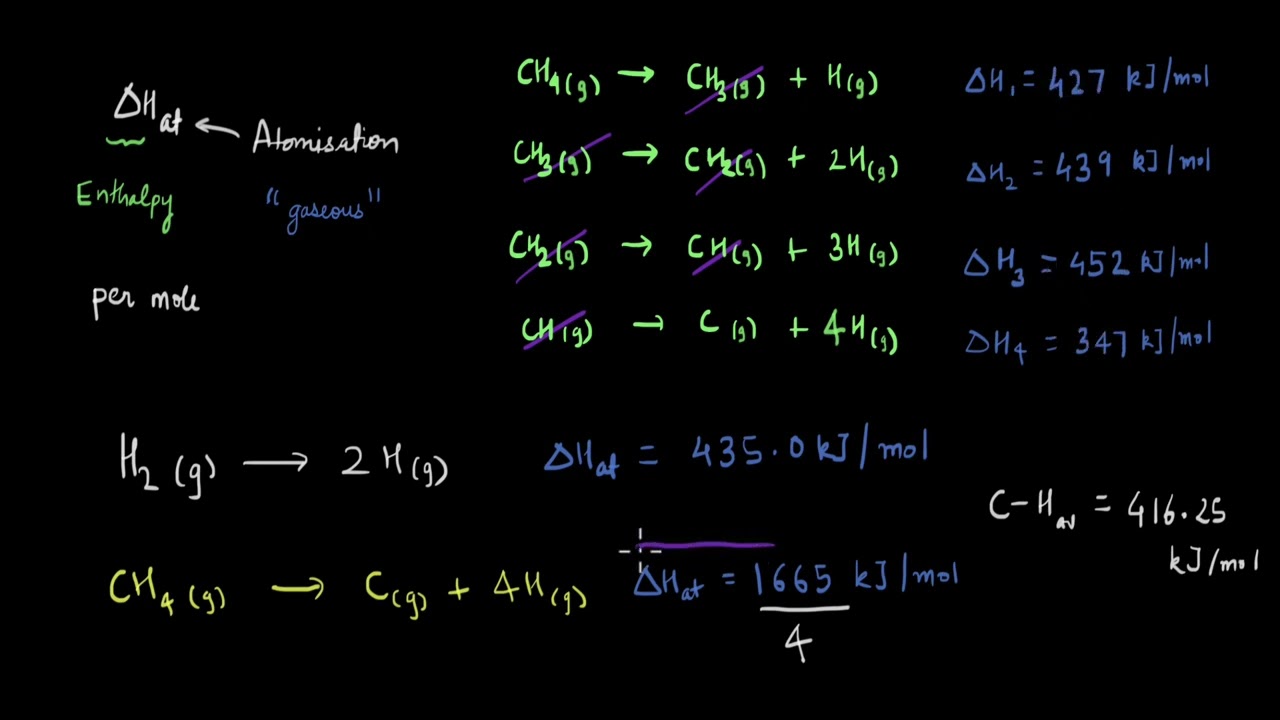 ΔHat ← Atomisation
Enthalpy "gaseous"
per mole
CH4(g) → CH3(g) + H(g) ΔH1 = 427 kJ/mol
CH3(g) → CH2(g) + 2H(g) ΔH2 = 439 kJ/mol
CH2(g) → CH(g) + 3H(g) ΔH3 = 452 kJ/mol
CH(g) → C(g) + 4H(g) ΔH4 = 347 kJ/mol
H2(g) → 2H(g) ΔHat = 435.0 kJ/mol
C-Hav = 416.25
kJ/mol
CH4(g) → C(g) + 4H(g) ΔHat = 1665 kJ/mol
4